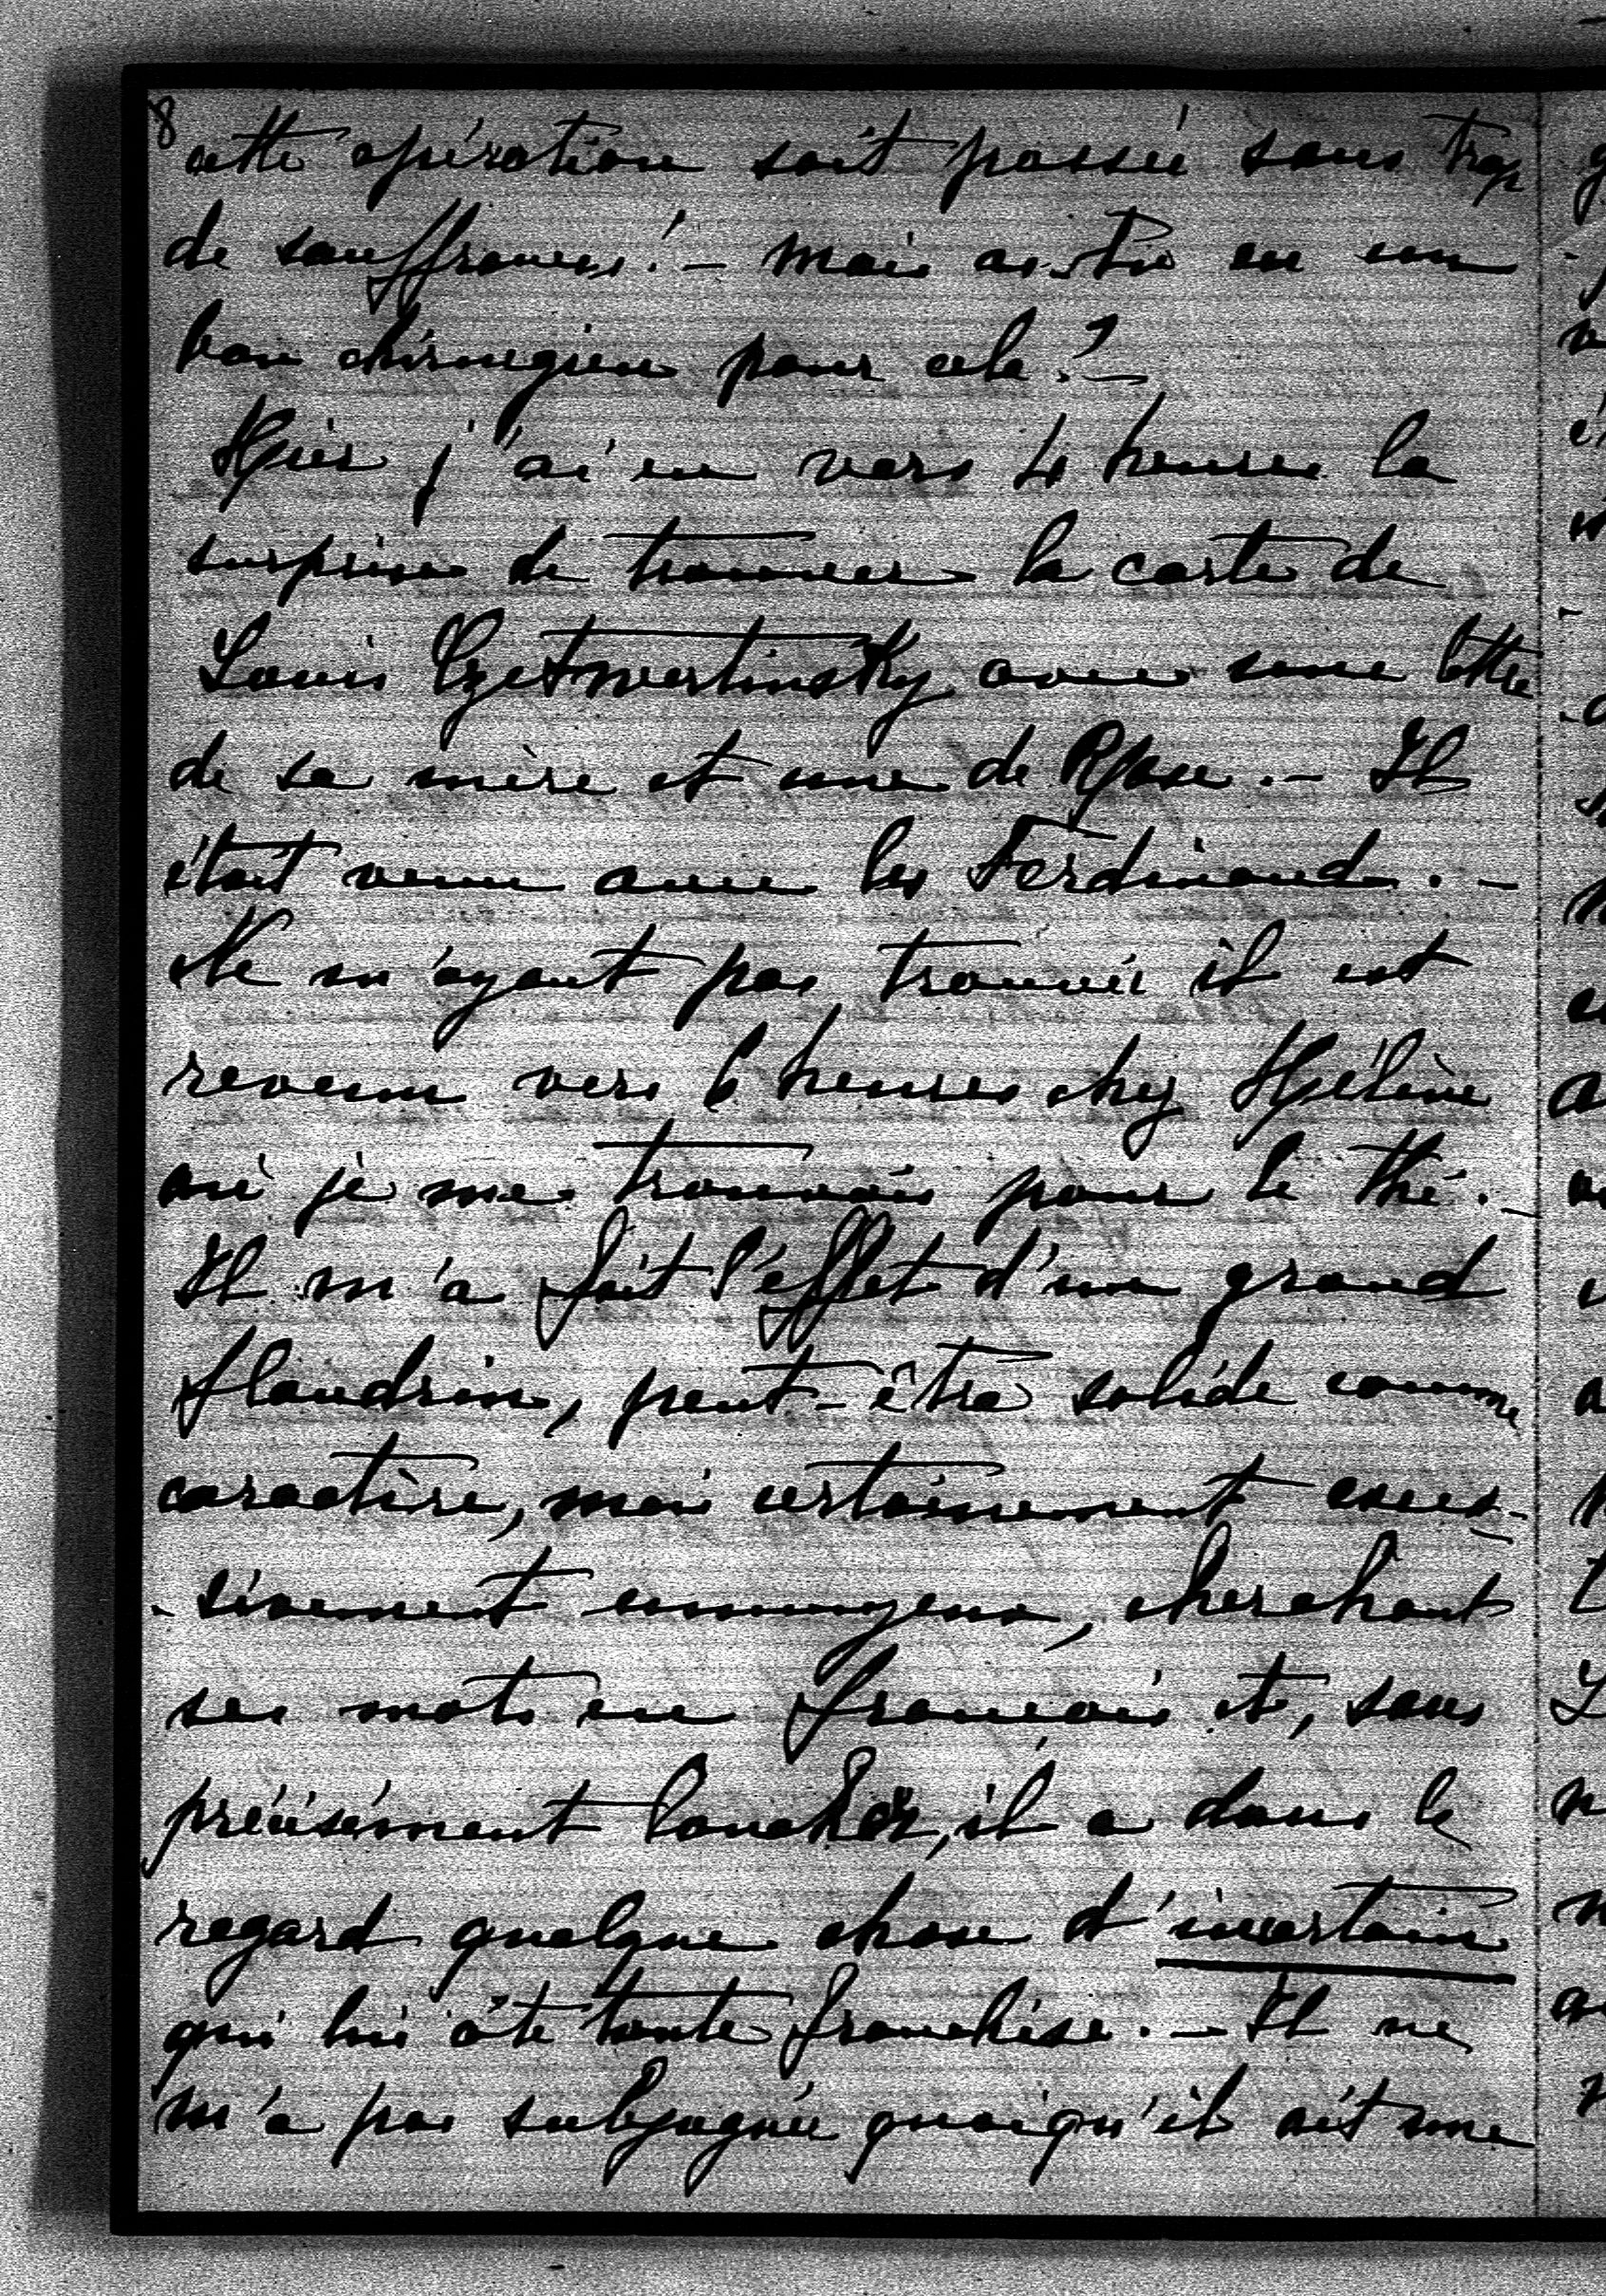 8
cette opération soit passée sans trop
de souffrances! – Mais as-tu eu un
bon chirurgien pour cela? –
Hier j'ai eu vers 4 heures la
surprise de trouver la carte de
Louis Czetwertinsky avec une lettre
de sa mère et une de Rose. – Il
était venu avec les Ferdinand. –
Ne m'ayant pas trouvée il est
revenu vers 6 heures chez Hélène
où je me trouvais pour le thé. –
Il m'a fait l'effet d'un grand
flandrin, peut-être solide comme
caractère, mais certainement exces-
-sivement ennuyeux, cherchant
ses mots en français et, sans
précisément loucher, il a dans le
regard quelque chose d'incertain
qui lui ôte toute franchise. – Il ne
m'a pas subjuguée quoiqu'il ait une